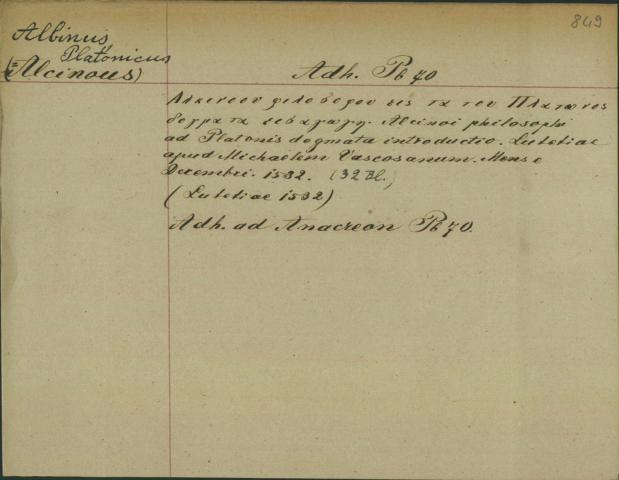 849
Albinus
Platonicus
(= Alcinous)
Adh. Pb 70
Αλκινοου φιλοσοφου εις τα του Πλατωνος
δογματα εισαγωγη. Alcinoi philosophi
ad Platonis dogmata introductio. Lutetiae
apud Michaelem Vascosanum. Mense
Decembri. 1532. (32 Bl.)
(Lutetiae 1532)
Adh. ad Anacreon Pb 70.